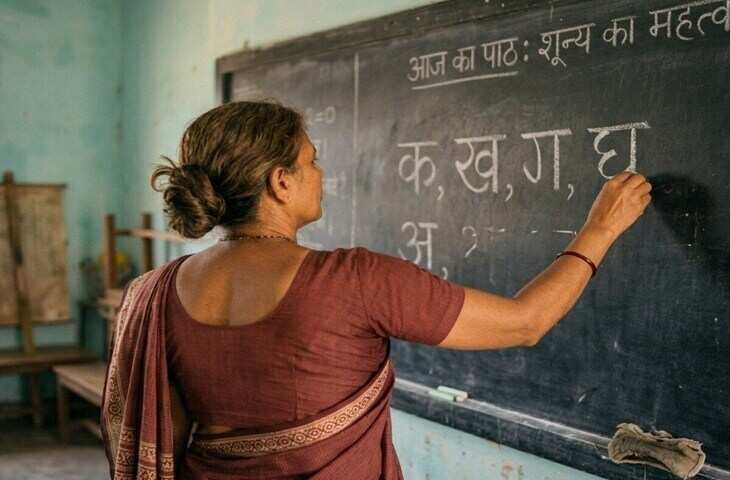 आज का पाठ : शून्य का महत्व
=0
क, ख, ग, घ
अ,